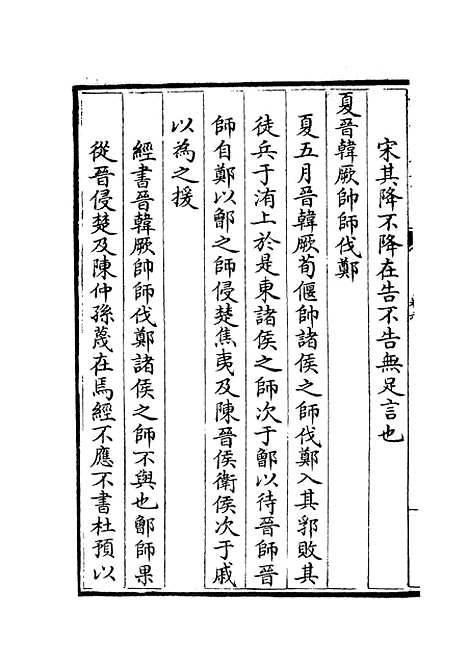 宋其降不降在告不告無足言也
夏晉韓厥帥師伐鄭
夏五月晉韓厥荀偃帥諸侯之師伐鄭入其郛敗其
徒兵于洧上於是東諸侯之師次于鄫以待晉師晉
師自鄭以鄫之師侵楚焦夷及陳晉侯衛侯次于戚
以為之援
經書晉韓厥帥師伐鄭諸侯之師不與也鄫師果
從晉侵楚及陳仲孫蔑在焉經不應不書杜預以